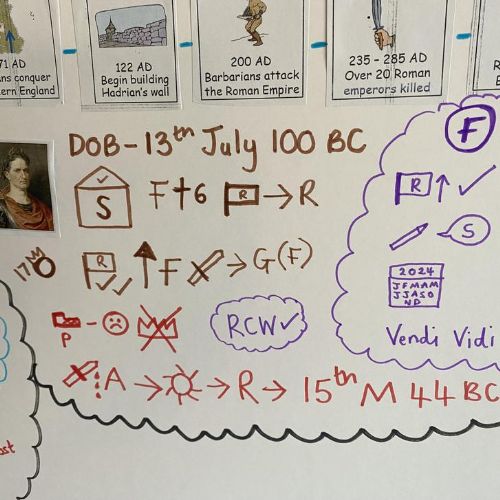 71 AD
ns conquer
ern England
122 AD
Begin building
Hadrian's wall
200 AD
Barbarians attack
the Roman Empire
235 - 285 AD
Over 20 Roman
emperors killed
R
E
DOB - 13th July 100 BC
S F†6 R → R
17 R F → G(F)
P - RCW ✓
A → → R → 15th M 44 BC
F
R ↑ ✓
S
2024
JFMAM
JJASO
ND
Vendi Vidi
st